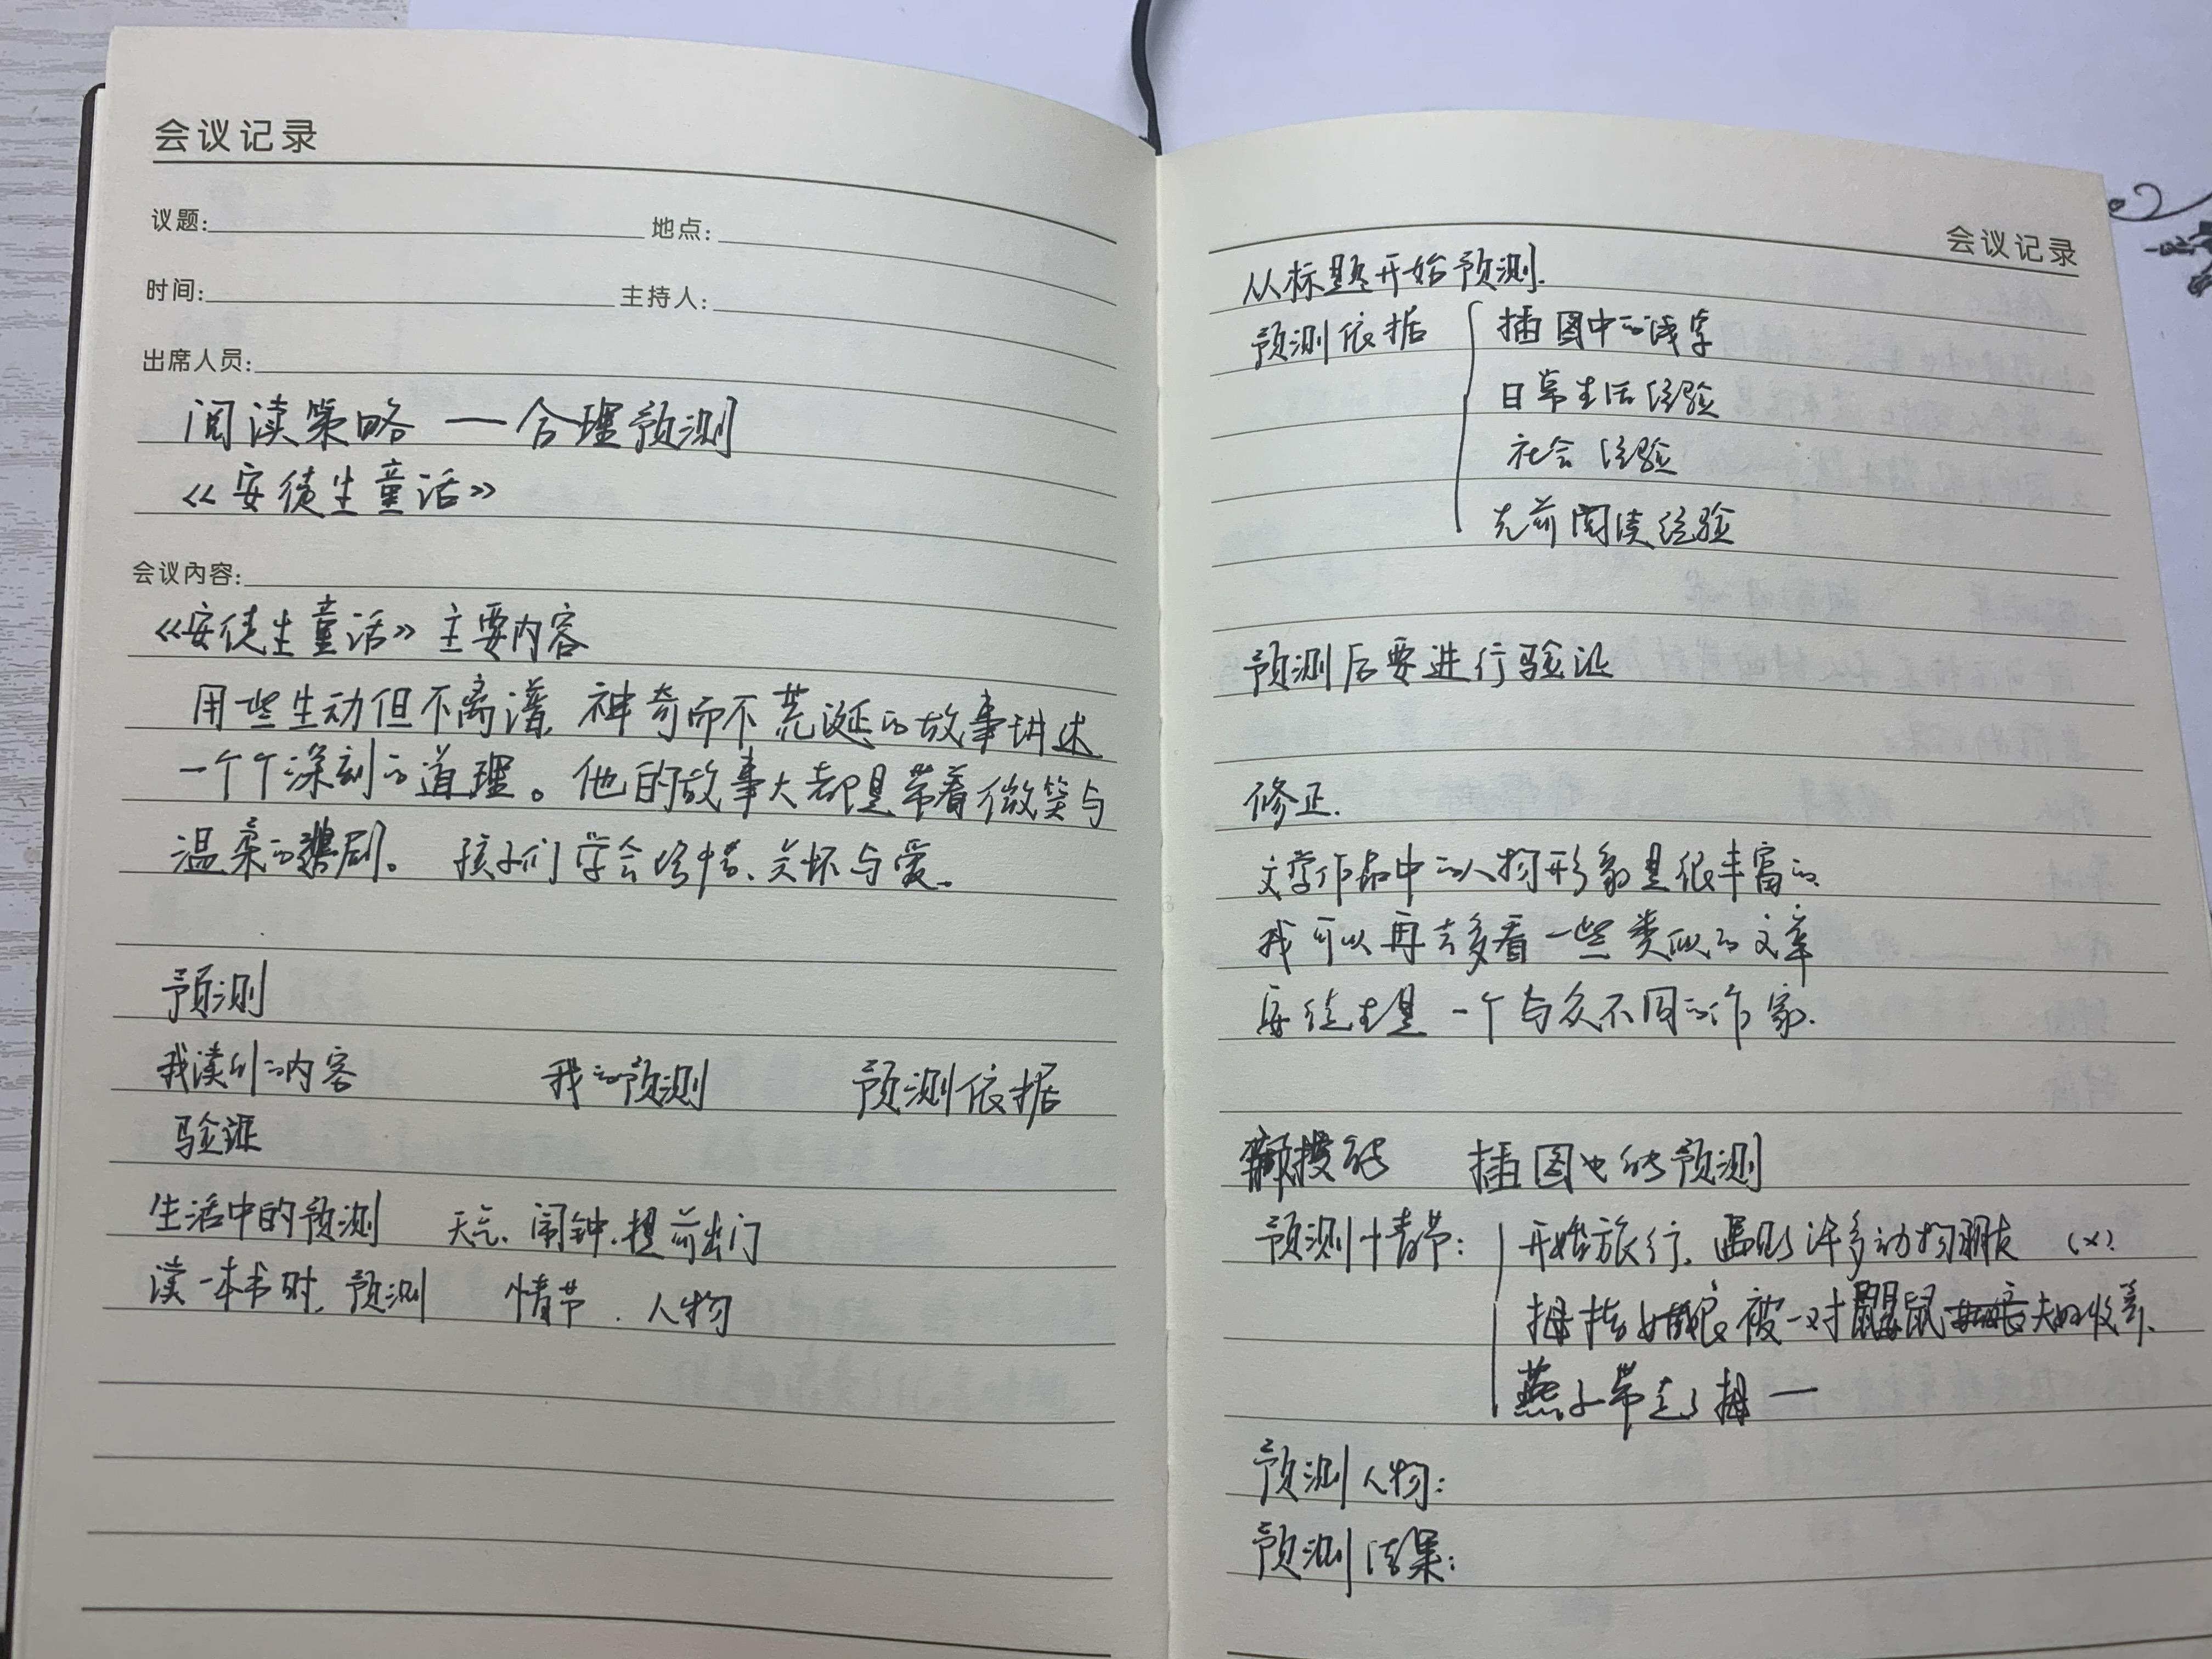 会议记录
议题: 地点:
时间: 主持人:
出席人员:
阅读策略 — 合理预测
《安徒生童话》
会议内容:
《安徒生童话》主要内容
用些生动但不离谱, 神奇而不荒诞的故事讲述
一个个深刻的道理。他的故事大都是带着微笑与
温柔的悲剧。 孩子们学会珍惜、关怀与爱。
预测
我读到的内容 我的预测 预测依据
验证
生活中的预测 天气、闹钟、提前出门
读一本书时, 预测 情节、人物
会议记录
从标题开始预测.
预测依据 插图中的
日常生活经验
社会经验
先前阅读经验
预测后要进行验证
修正.
文学作品中的人物形象是很丰富的
我可以再去多看一些类似的文章
安徒生是一个与众不同的作家.
插图也能预测
预测情节: 开始旅行, 遇见许多动物朋友 (×).
拇指姑娘被一对鼹鼠夫妇收养.
燕子带走了拇—
预测人物:
预测结果: